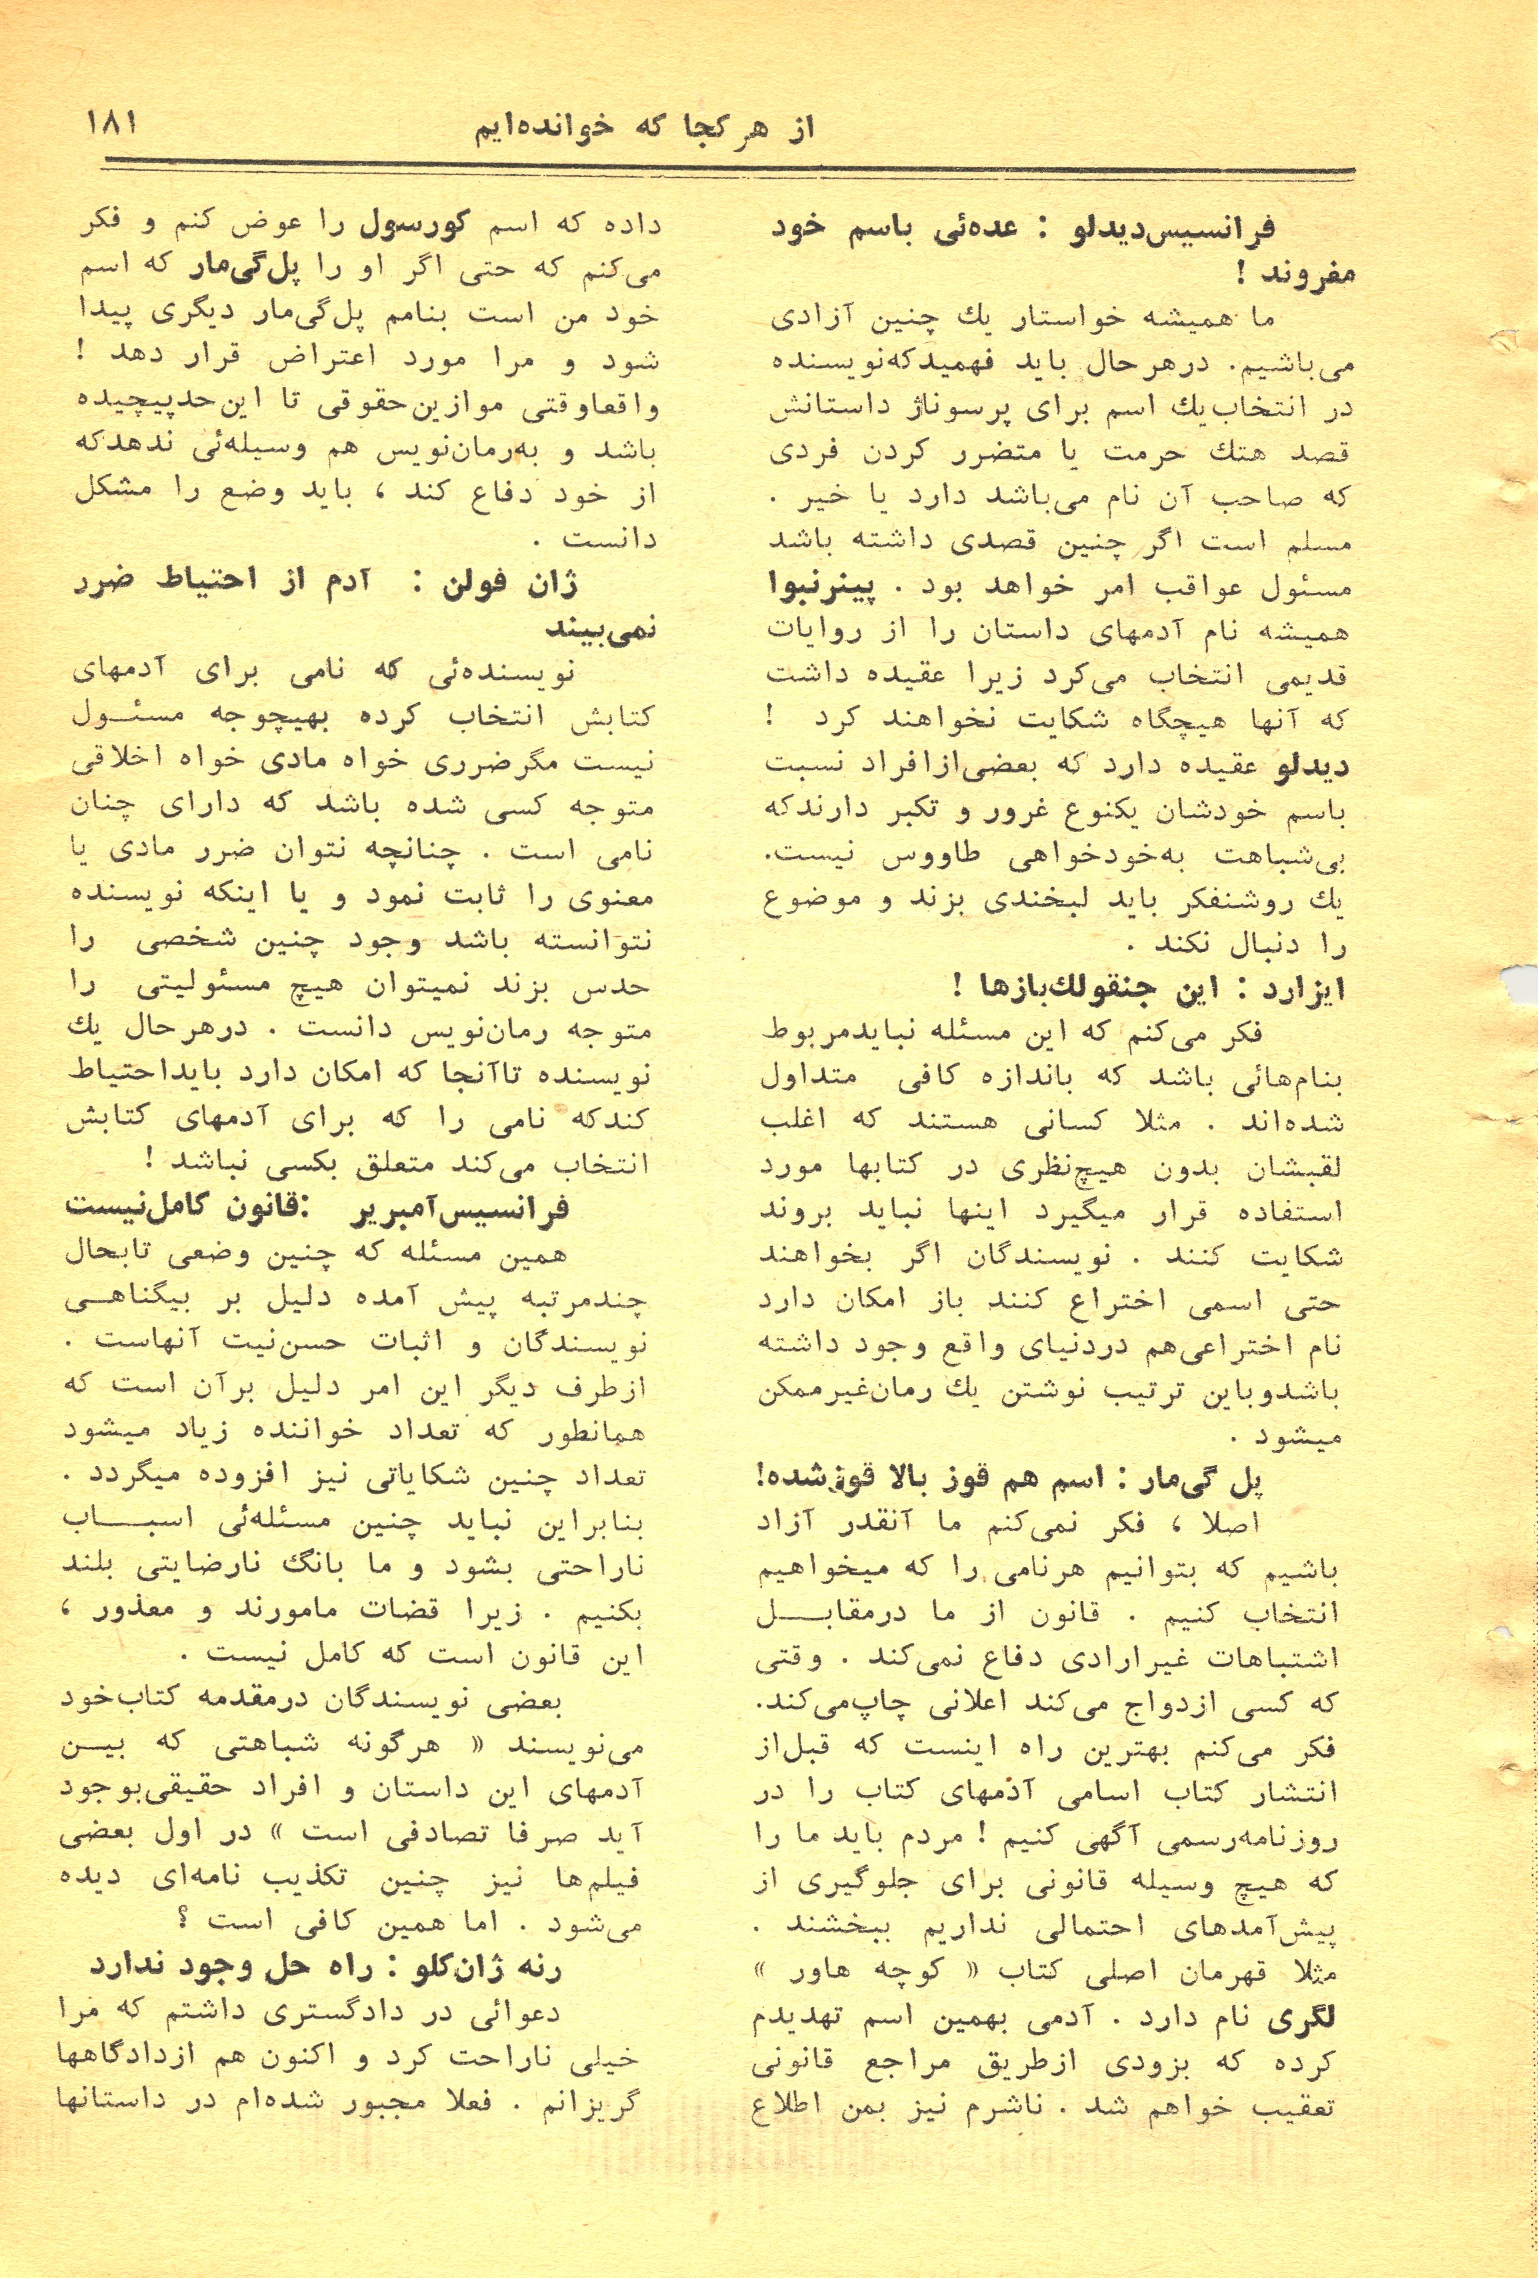 از هر کجا که خوانده‌ایم
۱۸۱
فرانسیس‌دیدلو : عده‌ئی باسم خود
مفروند !
ما همیشه خواستار یك چنین آزادی
می‌باشیم. درهرحال باید فهمیدکه‌نویسنده
در انتخاب‌یك اسم برای پرسوناژ داستانش
قصد هتك حرمت یا متضرر کردن فردی
که صاحب آن نام می‌باشد دارد یا خیر .
مسلم است اگر چنین قصدی داشته باشد
مسئول عواقب امر خواهد بود . پینرنبوا
همیشه نام آدمهای داستان را از روایات
قدیمی انتخاب می‌کرد زیرا عقیده داشت
که آنها هیچگاه شکایت نخواهند کرد !
دیدلو عقیده دارد که بعضی‌ازافراد نسبت
باسم خودشان یکنوع غرور و تکبر دارندکه
بی‌شباهت به‌خودخواهی طاووس نیست.
یك روشنفکر باید لبخندی بزند و موضوع
را دنبال نکند .
ایزارد : این جنقولك‌بازها !
فکر می‌کنم که این مسئله نبایدمربوط
بنام‌هائی باشد که باندازه کافی متداول
شده‌اند . مثلا کسانی هستند که اغلب
لقبشان بدون هیچ‌نظری در کتابها مورد
استفاده قرار میگیرد اینها نباید بروند
شکایت کنند . نویسندگان اگر بخواهند
حتی اسمی اختراع کنند باز امکان دارد
نام اختراعی‌هم دردنیای واقع وجود داشته
باشدوباین ترتیب نوشتن یك رمان‌غیرممکن
میشود .
پل گی‌مار : اسم هم قوز بالا قوزشده!
اصلا ، فکر نمی‌کنم ما آنقدر آزاد
باشیم که بتوانیم هرنامی را که میخواهیم
انتخاب کنیم . قانون از ما درمقابـــل
اشتباهات غیرارادی دفاع نمی‌کند . وقتی
که کسی ازدواج می‌کند اعلانی چاپ‌می‌کند.
فکر می‌کنم بهترین راه اینست که قبل‌از
انتشار کتاب اسامی آدمهای کتاب را در
روزنامه‌رسمی آگهی کنیم ! مردم باید ما را
که هیچ وسیله قانونی برای جلوگیری از
پیش‌آمدهای احتمالی نداریم ببخشند .
مثلا قهرمان اصلی کتاب « کوچه هاور »
لگری نام دارد . آدمی بهمین اسم تهدیدم
کرده که بزودی ازطریق مراجع قانونی
تعقیب خواهم شد . ناشرم نیز بمن اطلاع
داده که اسم کورسول را عوض کنم و فکر
می‌کنم که حتی اگر او را پل‌گی‌مار که اسم
خود من است بنامم پل‌گی‌مار دیگری پیدا
شود و مرا مورد اعتراض قرار دهد !
واقعاوقتی موازین‌حقوقی تا این‌حدپیچیده
باشد و به‌رمان‌نویس هم وسیله‌ئی ندهدکه
از خود دفاع کند ، باید وضع را مشکل
دانست .
ژان فولن : آدم از احتیاط ضرر
نمی‌بیند
نویسنده‌ئی که نامی برای آدمهای
کتابش انتخاب کرده بهیچوجه مسئـول
نیست مگرضرری خواه مادی خواه اخلاقی
متوجه کسی شده باشد که دارای چنان
نامی است . چنانچه نتوان ضرر مادی یا
معنوی را ثابت نمود و یا اینکه نویسنده
نتوانسته باشد وجود چنین شخصی را
حدس بزند نمیتوان هیچ مسئولیتی را
متوجه رمان‌نویس دانست . درهرحال یك
نویسنده تاآنجا که امکان دارد بایداحتیاط
کندکه نامی را که برای آدمهای کتابش
انتخاب می‌کند متعلق بکسی نباشد !
فرانسیس‌آمبریر :قانون کامل‌نیست
همین مسئله که چنین وضعی تابحال
چندمرتبه پیش آمده دلیل بر بیگناهـی
نویسندگان و اثبات حسن‌نیت آنهاست .
ازطرف دیگر این امر دلیل برآن است که
همانطور که تعداد خواننده زیاد میشود
تعداد چنین شکایاتی نیز افزوده میگردد .
بنابراین نباید چنین مسئله‌ئی اسبـــاب
ناراحتی بشود و ما بانگ نارضایتی بلند
بکنیم . زیرا قضات مامورند و معذور ،
این قانون است که کامل نیست .
بعضی نویسندگان درمقدمه کتاب‌خود
می‌نویسند « هرگونه شباهتی که بیـن
آدمهای این داستان و افراد حقیقی‌بوجود
آید صرفا تصادفی است » در اول بعضی
فیلم‌ها نیز چنین تکذیب نامه‌ای دیده
می‌شود . اما همین کافی است ؟
رنه ژان‌کلو : راه حل وجود ندارد
دعوائی در دادگستری داشتم که مرا
خیلی ناراحت کرد و اکنون هم ازدادگاهها
گریزانم . فعلا مجبور شده‌ام در داستانها